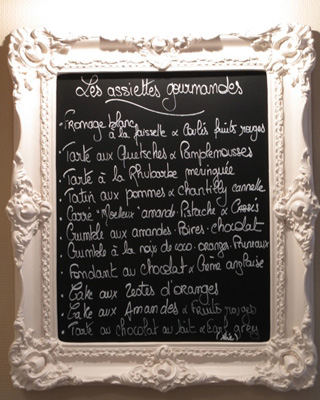 Les assiettes gourmandes
• Fromage blanc
à la faisselle & Coulis fruits rouges
• Tarte aux Quetsches & Pamplemousses
• Tarte à la Rhubarbe meringuée
• Tatin aux pommes & chantilly cannelle
• Carré Moelleux amande. Pistache &
• Crumble aux amandes. Poires. chocolat
• Crumble à la noix de coco. oranges. Pruneaux
• Fondant au chocolat & Crème anglaise
• Cake aux Zestes d'oranges
• Cake aux Amandes & fruits rouges
• Tarte au chocolat au lait & Earl grey